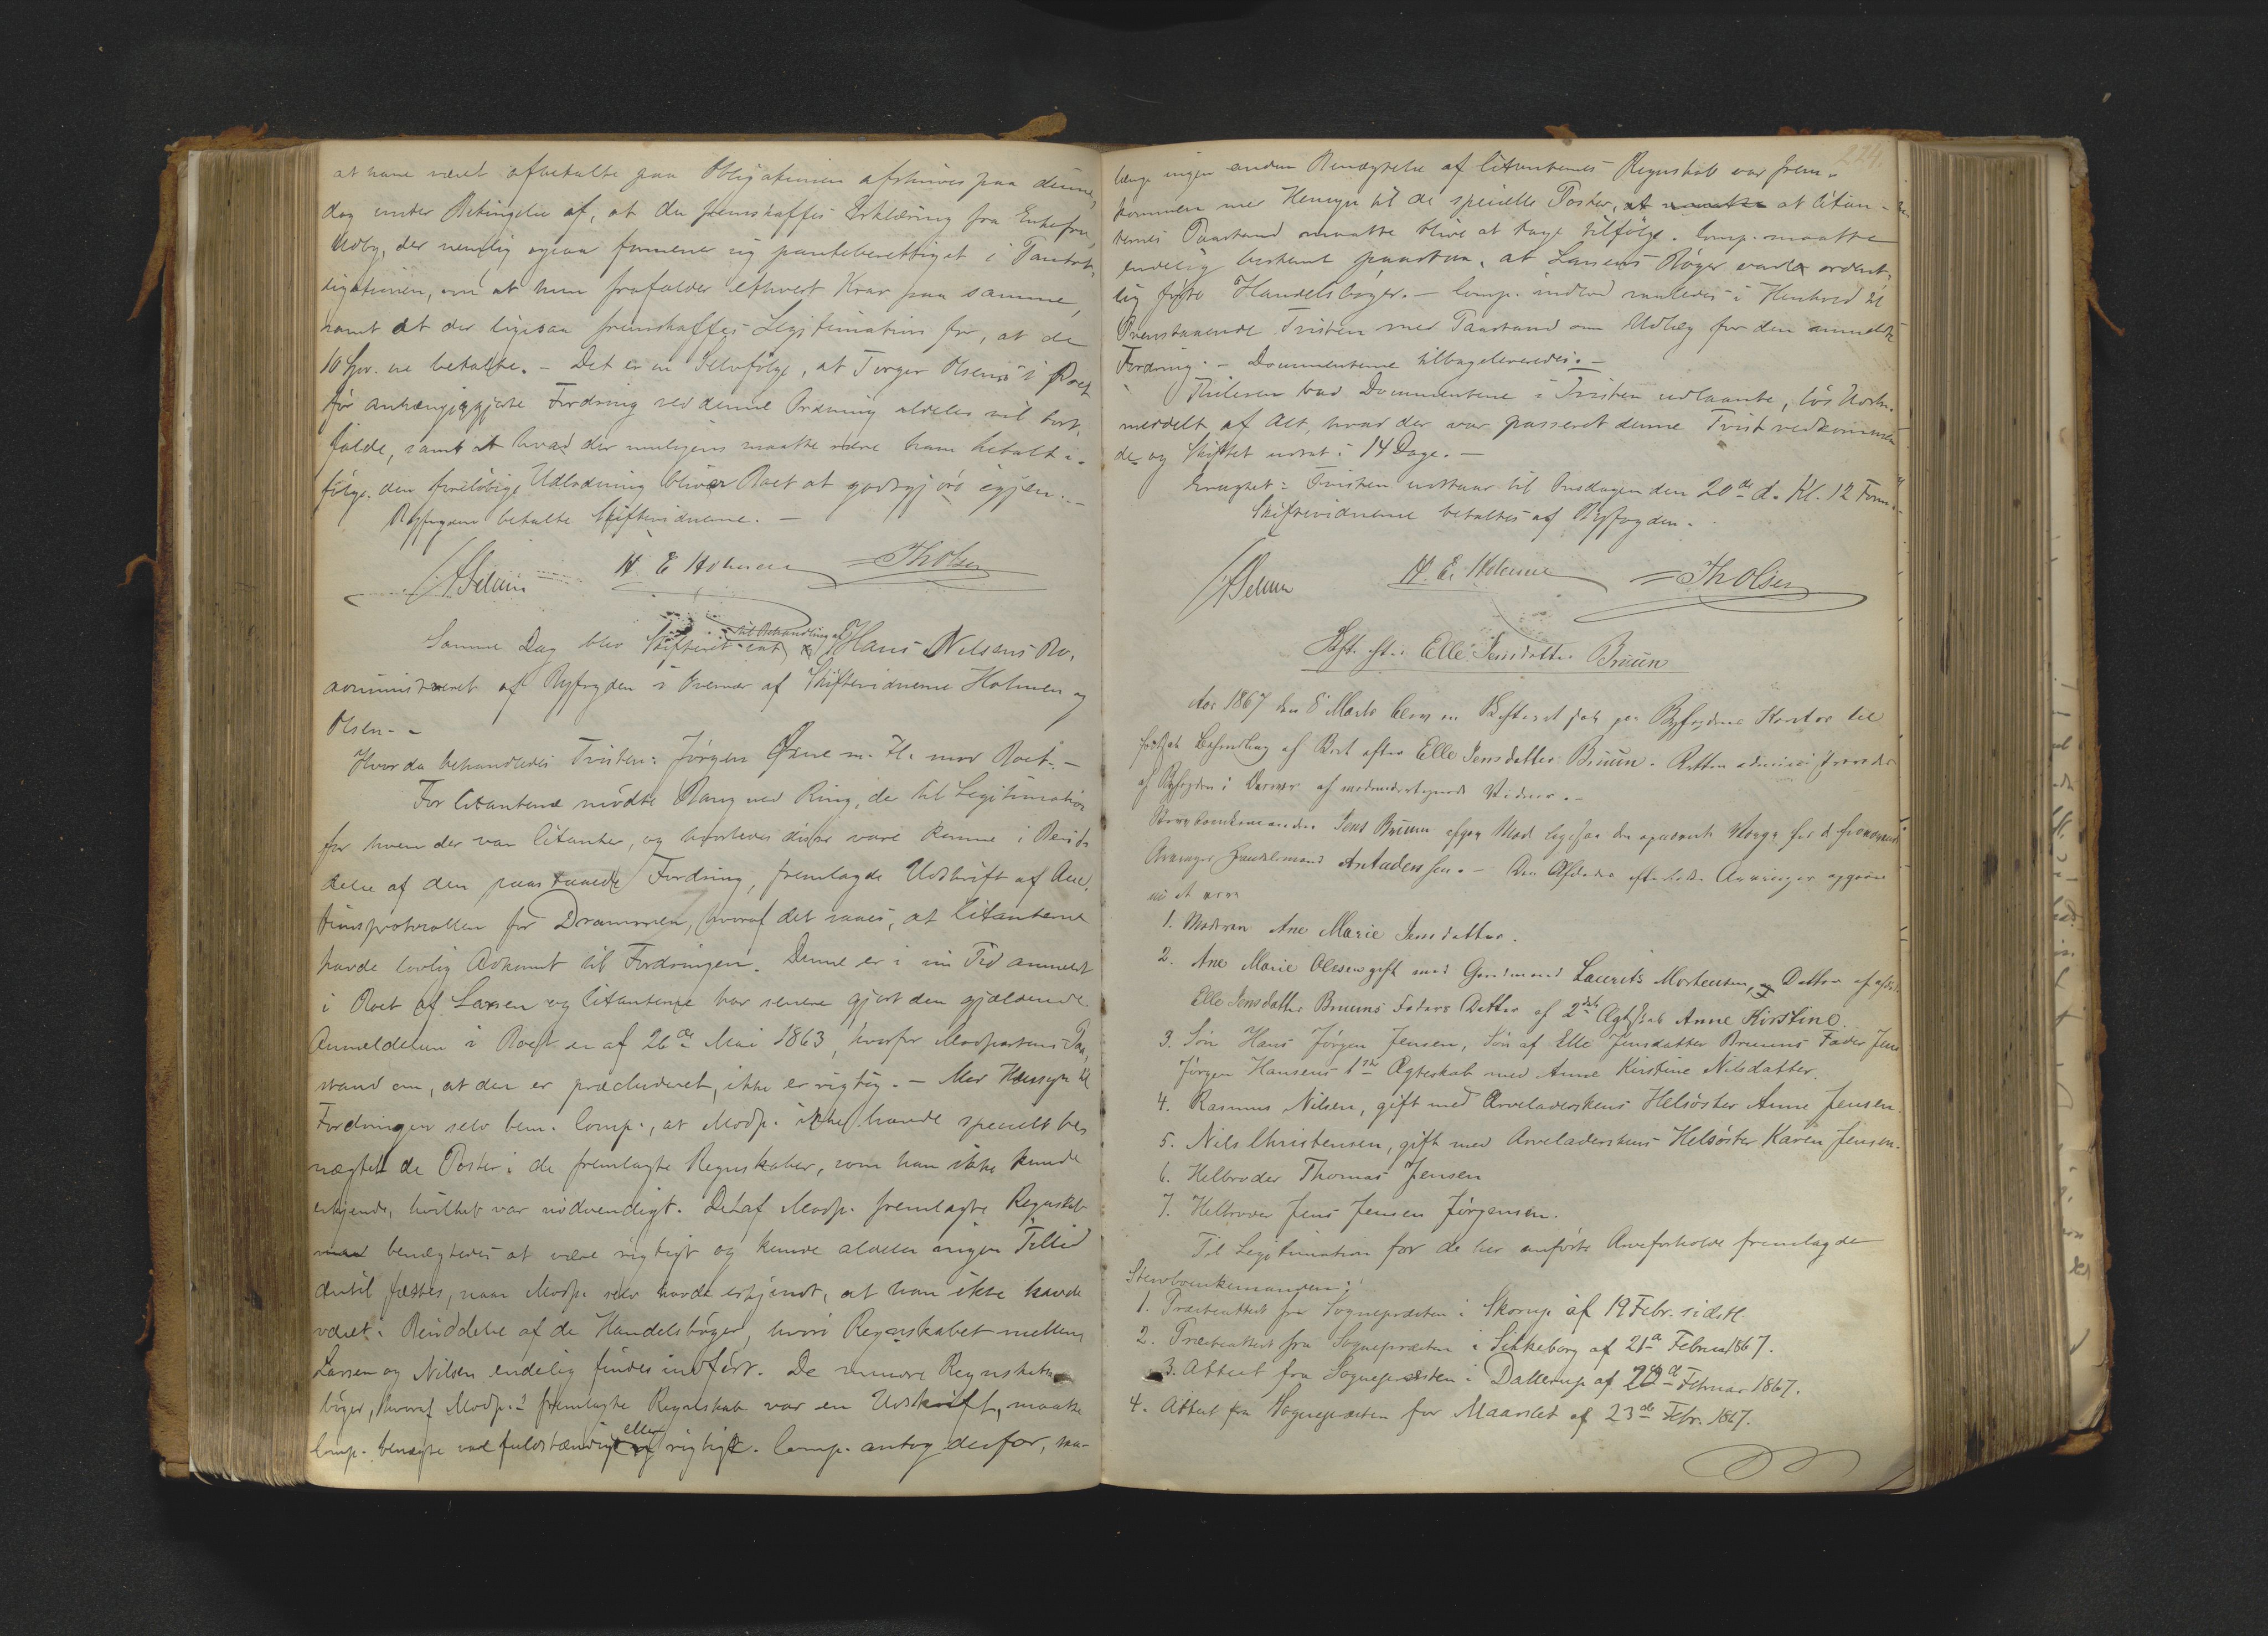 at have været afbetalte paa Obligationen afskrives paa denne,
dog under Betingelse af, at der fremskaffes Erklæring fra Enkefru
Udby, der nemlig ogsaa formener sig panteberettiget i Pantob-
ligationen, om at hun frafalder ethvert Krav paa samme,
samt at der ligesaa fremskaffes Legitimation for, at de
10 Spd. ere betalte. – Det er en Selvfølge, at Torger Olsens i Boet
før anhængiggjorte Fordring ved denne Ordning aldeles vil bort-
falde, samt at hvad der muligens maatte være ham betalt i-
følge den foreløbige Udlodning bliver Boet at godtgjøre igjen. –
Byfogden betalte Skiftevidnerne. –
H. E. Holmen Th Olsen
Samme Dag blev Skifteret sat til Behandling af Hans Nilsens Bo,
administreret af Byfogden i Overvær af Skiftevidnerne Holmen og
Olsen. –
Hvorda behandledes Tvisten: Jørgen m. Fl. mod Boet. –
For Citanterne mødte Bang ved Ring, der til Legitimation
for hvem der var Citanter, og hvorledes disse vare komne i Besid-
delse af den paastaaede Fordring, fremlagde Udskrift af Auc-
tionsprotocollen for Drammen, hvoraf det saaes, at Citanterne
havde lovlig Adkomst til Fordringen. Denne er i sin Tid anmeldt
i Boet af Larsen og Citanterne har senere gjort den gjældende.
Anmeldelsen i Boet er af 26de Mai 1863, hvorfor Modpartens Paa-
stand om, at den er præcluderet, ikke er rigtig. – Med Hensyn til
Fordringen selv bem. Comp., at Modp. ikke havde specielt be-
nægtet de Poster i de fremlagte Regnskaber, som han ikke kunde
erkjende, hvilket var nødvendigt. Det af Modp. fremlagte Regnskab
benægtedes at være rigtigt og kunde aldeles ingen Tillid
dertil fæstes, naar Modp. selv havde erkjendt, at han ikke havde
været i Besiddelse af de Handelsbøger, hvori Regnskabet mellem
Larsen og Nilsen endelig findes indført. De mindre Regnskabs-
bøger, hvoraf Modp.s fremlagte Regnskab var en Udskrift, maatte
Comp. benægte var fuldstændigt eller rigtigt. Comp. antog derfor, saa-
224.
længe ingen anden Benægtelse af Citanternes Regnskab var frem-
kommen med Hensyn til de specielle Poster, at Citan-
ternes Paastand maatte blive at tage tilfølge. Comp. maatte
endelig bestemt paastaa, at Larsens Bøger vare ordent-
lig førte Handelsbøger. – Comp. indlod saaledes i Henhold til
Ovenstaaende Tvisten med Paastand om Udlæg for den anmeldte
Fordring. – Documenterne tilbageleveredes. –
Thilesen bad Documenterne i Tvisten udlaante, sig Udskr.
meddelt af Alt, hvad der var passeret denne Tvist vedkommen-
de og Skiftet udsat i 14 Dage. –
Eragtet: Tvisten udstaar til Onsdagen den 20de d. Kl. 12 Form.
Skiftevidnerne betaltes af Byfogden.
H. E. Holmen Th Olsen
Skft. eft. Elle Jensdatter Bruun
Aar 1867 den 8 Marts blev en Skifteret sat paa Byfogdens Kontor til
fortsat Behandling af Boet efter Elle Jensdatter Bruun. Retten administreredes
af Byfogden i Overvær af medunderskrevne Vidner. –
Stervboenkemanden Jens Bruun gav Møde ligesaa den opnævnte Værge for de fraværende
Arvinger Handelsmand Ast. Andersen. – Den Afdødes efterladte Arvinger opgives
nu at være
1. Moderen Ane Marie Jensdatter.
2. Ane Marie Olesen gift med Gaardmand Laurits Mortensen, Datter af afdøde
Elle Jensdatter Bruuns Faders Datter af 2det Ægteskab Anne Kirstine.
3. Søn Hans Jørgen Jensen, Søn af Elle Jensdatter Bruuns Fader Jens
Jørgen Hansens 1ste Ægteskab med Anne Kirstine Nilsdatter.
4. Rasmus Nilsen, gift med Arveladerskens Helsøster Anne Jensen.
5. Nils Christensen, gift med Arveladerskens Helsøster Karen Jensen.
6. Helbroder Thomas Jensen
7. Helbroder Jens Jensen Jørgensen.
Til Legitimation for de her anførte Arveforholde fremlagde
Stervboenkemanden:
1. Præsteattest fra Sognepræsten i Skorup af 19 Febr. sidstl.
2. Præsteattest fra Sognepræsten i Silkeborg af 21de Februar 1867.
3. Attest fra Sognepræsten i Dallerup af 20de Februar 1867.
4. Attest fra Sognepræsten for Maarslet af 23de Febr. 1867.